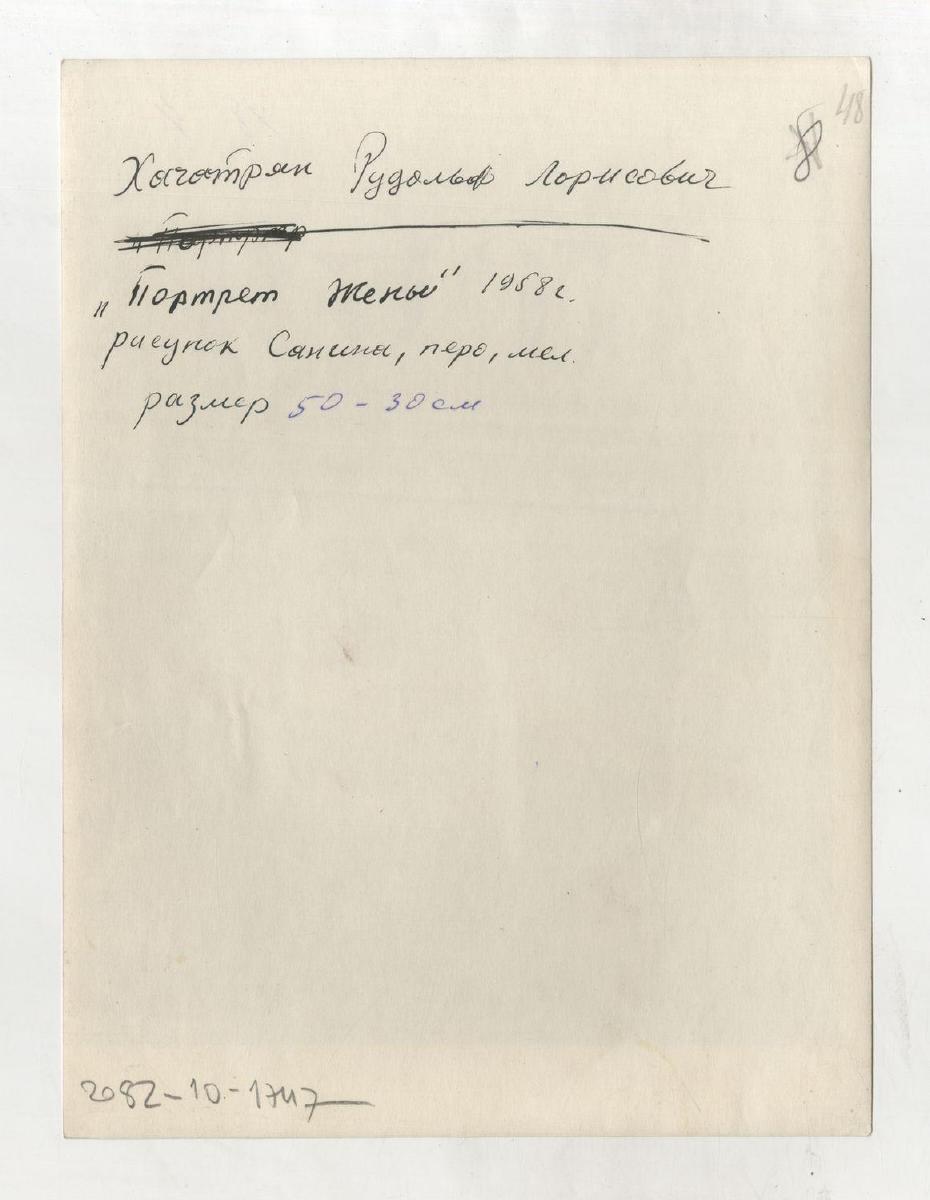 48
8
Хачатрян Рудольф Лорисович
„Портрет жены" 1958г.
рисунок Санина, перо, мел.
размер 50-30см
2082-10-1747